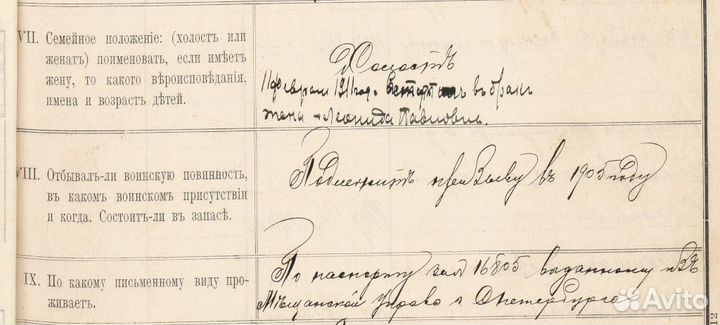 VII. Семейное положеніе: (холостъ или
женатъ) поименовать, если имѣетъ
жену, то какого вѣроисповѣданія,
имена и возрастъ дѣтей.
Холостъ
11 февраля 1911 год. въ бракъ
жена - Леонида Павловна.
VIII. Отбывалъ-ли воинскую повинность,
въ какомъ воинскомъ присутствіи
и когда. Состоитъ-ли въ запасѣ.
Подлежитъ призыву въ 1905 году
IX. По какому письменному виду про-
живаетъ.
По паспорту за № 16805 выданному изъ
Мѣщанской Управы г. С Петербурга
Avito